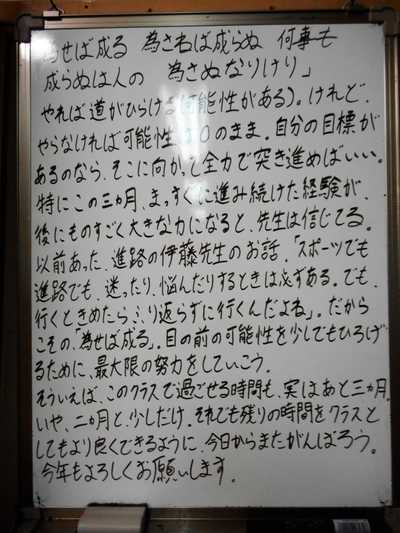 為せば成る 為さねば成らぬ 何事も
成らぬは人の 為さぬなりけり」
やれば道がひらける可能性がある)。けれど、
やらなければ可能性は0のまま。自分の目標が
あるのなら、そこに向かって全力で突き進めばいい。
特にこの三カ月、まっすぐに進み続けた経験が、
後にものすごく大きな力になると、先生は信じてる。
以前あった、進路の伊藤先生のお話、「スポーツでも
進路でも、迷ったり、悩んだりするときは必ずある。でも、
行くときめたらふり返らずに行くんだよね」。だから
こその「為せば成る」。目の前の可能性を少しでもひろげ
るために、最大限の努力をしていこう。
そういえば、このクラスで過ごせる時間も、実はあと三カ月。
いや、二カ月と、少しだけ。それでも残りの時間をクラスと
してもより良くできるように、今日からまたがんばろう。
今年もよろしくお願いします。